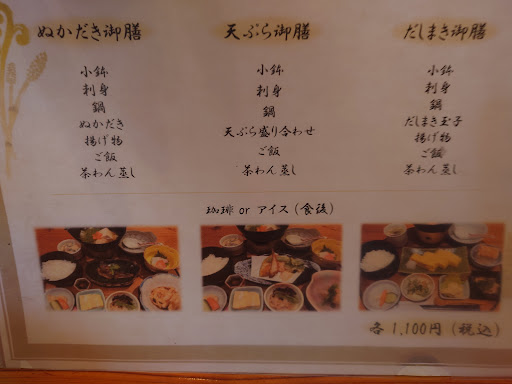 ぬかだき御膳
小鉢
刺身
鍋
ぬかだき
揚げ物
ご飯
茶わん蒸し
天ぷら御膳
小鉢
刺身
鍋
天ぷら盛り合わせ
ご飯
茶わん蒸し
だしまき御膳
小鉢
刺身
鍋
だしまき玉子
揚げ物
ご飯
茶わん蒸し
珈琲 or アイス (食後)
各 1,100円 (税込)